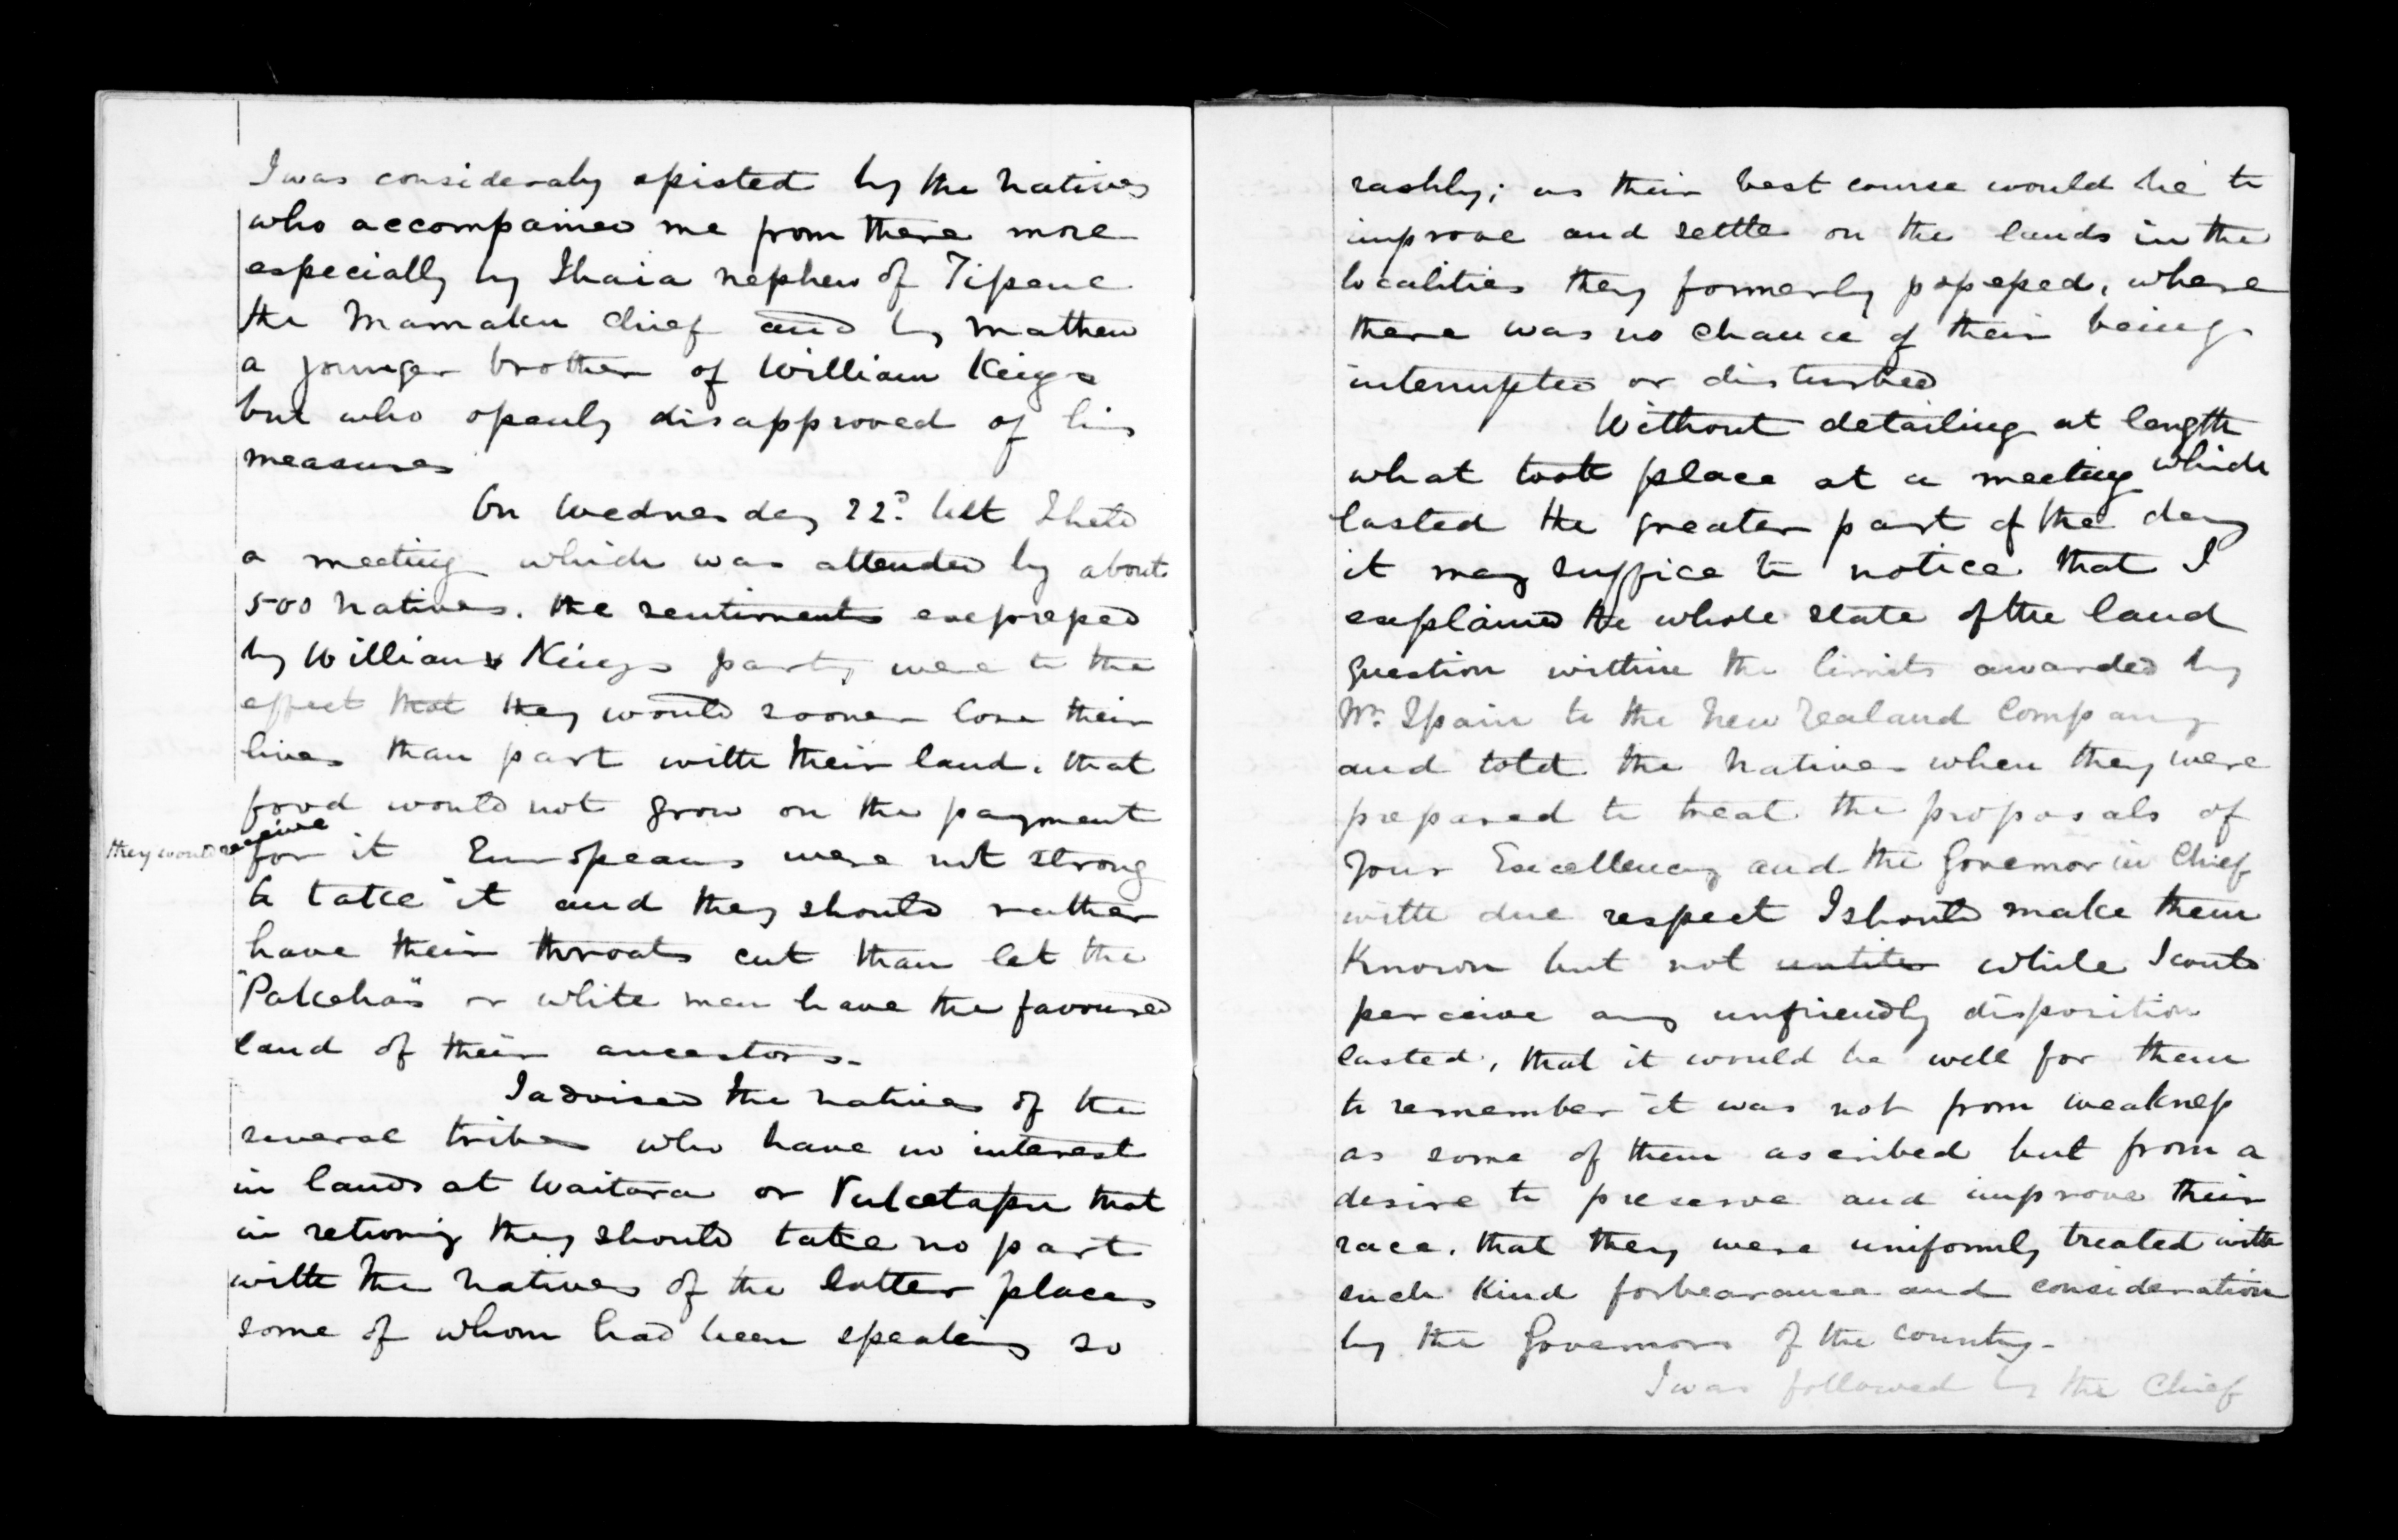 I was consideraby assisted by the natives
who accompained me from there more
especially by Ihaia nephew of Tipene
the Mamaku chief and by Mathew
a younger brother of William Kings
but who openly disapproved of his
measures
On Wednesday 22d. Ult I held
a meeting which was attended by about
500 natives. the sentiments expressed
by William Kings party were to the
effect that they would sooner lose their
lives than part with their land. that
food would not grow on the payment
they would receive
for it Europeans were not strong
to take it and they should rather
have their throats cut than let the
"Pakehas" or white men have the favoured
land of their ancestors.
I advised the natives of the
several tribes who have no interest
in lands at Waitara or Puketapu that
in retiring they should take no part
with the natives of the latter places
some of whom had been speaking so
rashly; as their best course would be to
improve and settle on the lands in the
localities they formerly possessed, where
there was no chance of their being
interrupted or disturbed
Without detailing at length
what took place at a meeting which
lasted the greater part of the day
it may suffice to notice that I
explained the whole state of the land
question within the limits awarded by
Mr. Spain to the New Zealand Company
and told the natives when they were
prepared to treat the proposals of
Your Excellency and the Governor in Chief
with due respect I should make them
Known but not while I could
perceive any unfriendly disposition
lasted, that it would be well for them
to remember it was not from weakness
as some of them ascribed but from a
desire to preserve and improve their
race. that they were uniformly treated with
such Kind forbearance and consideration
by the Governors of the country.
I was followed by the Chief